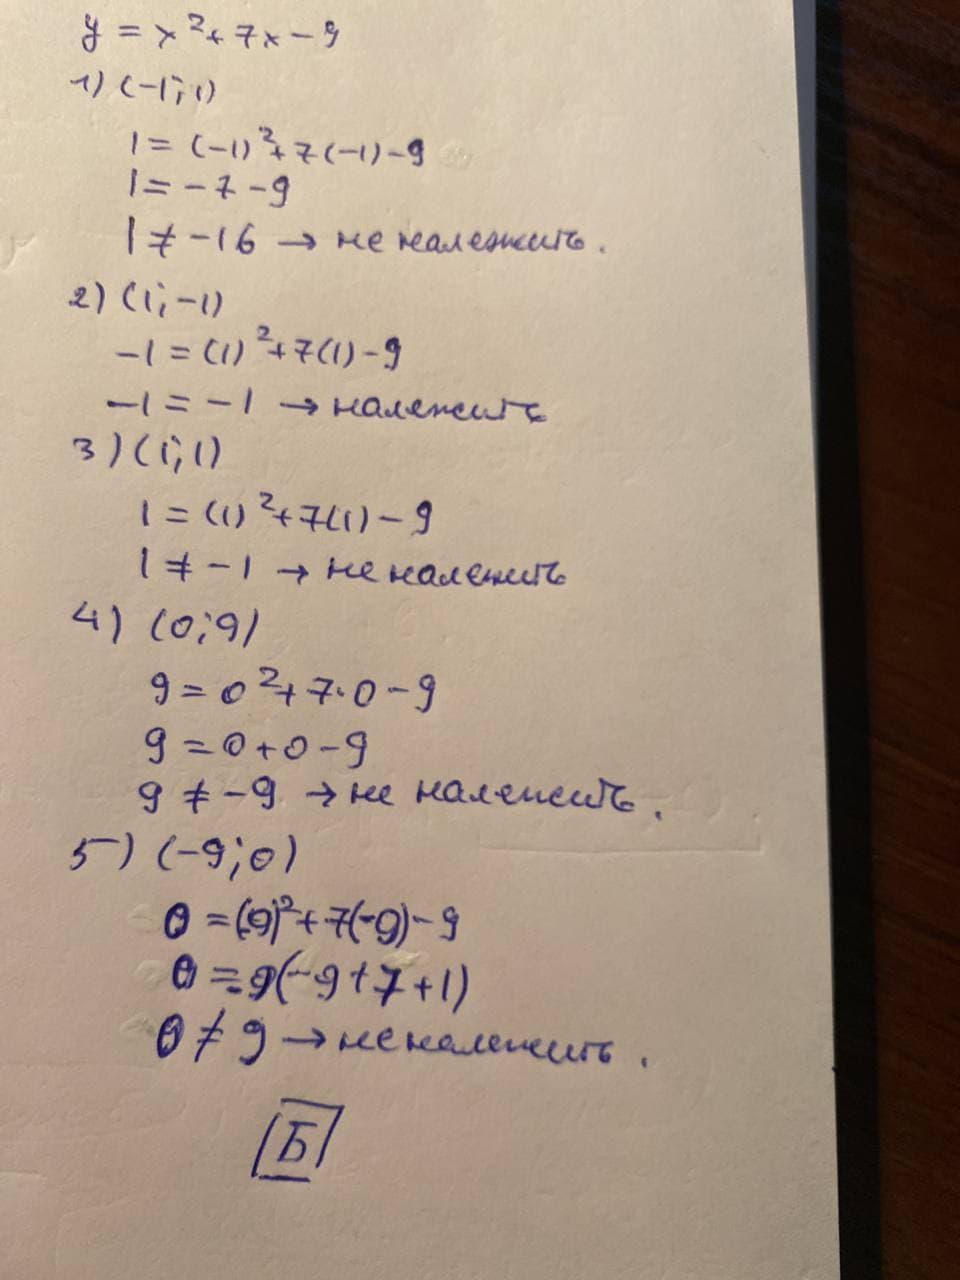 y = x²+7x-9
1) (-1; 1)
1 = (-1)²+7(-1)-9
1 = -7-9
1 ≠ -16 → не належить.
2) (1; -1)
-1 = (1)²+7(1)-9
-1 = -1 → належить
3) (1; 1)
1 = (1)²+7(1)-9
1 ≠ -1 → не належить
4) (0; 9)
9 = 0²+7·0-9
9 = 0+0-9
9 ≠ -9 → не належить.
5) (-9; 0)
0 = (-9)²+7(-9)-9
0 = -9(-9+7+1)
0 ≠ 9 → не належить.
Б